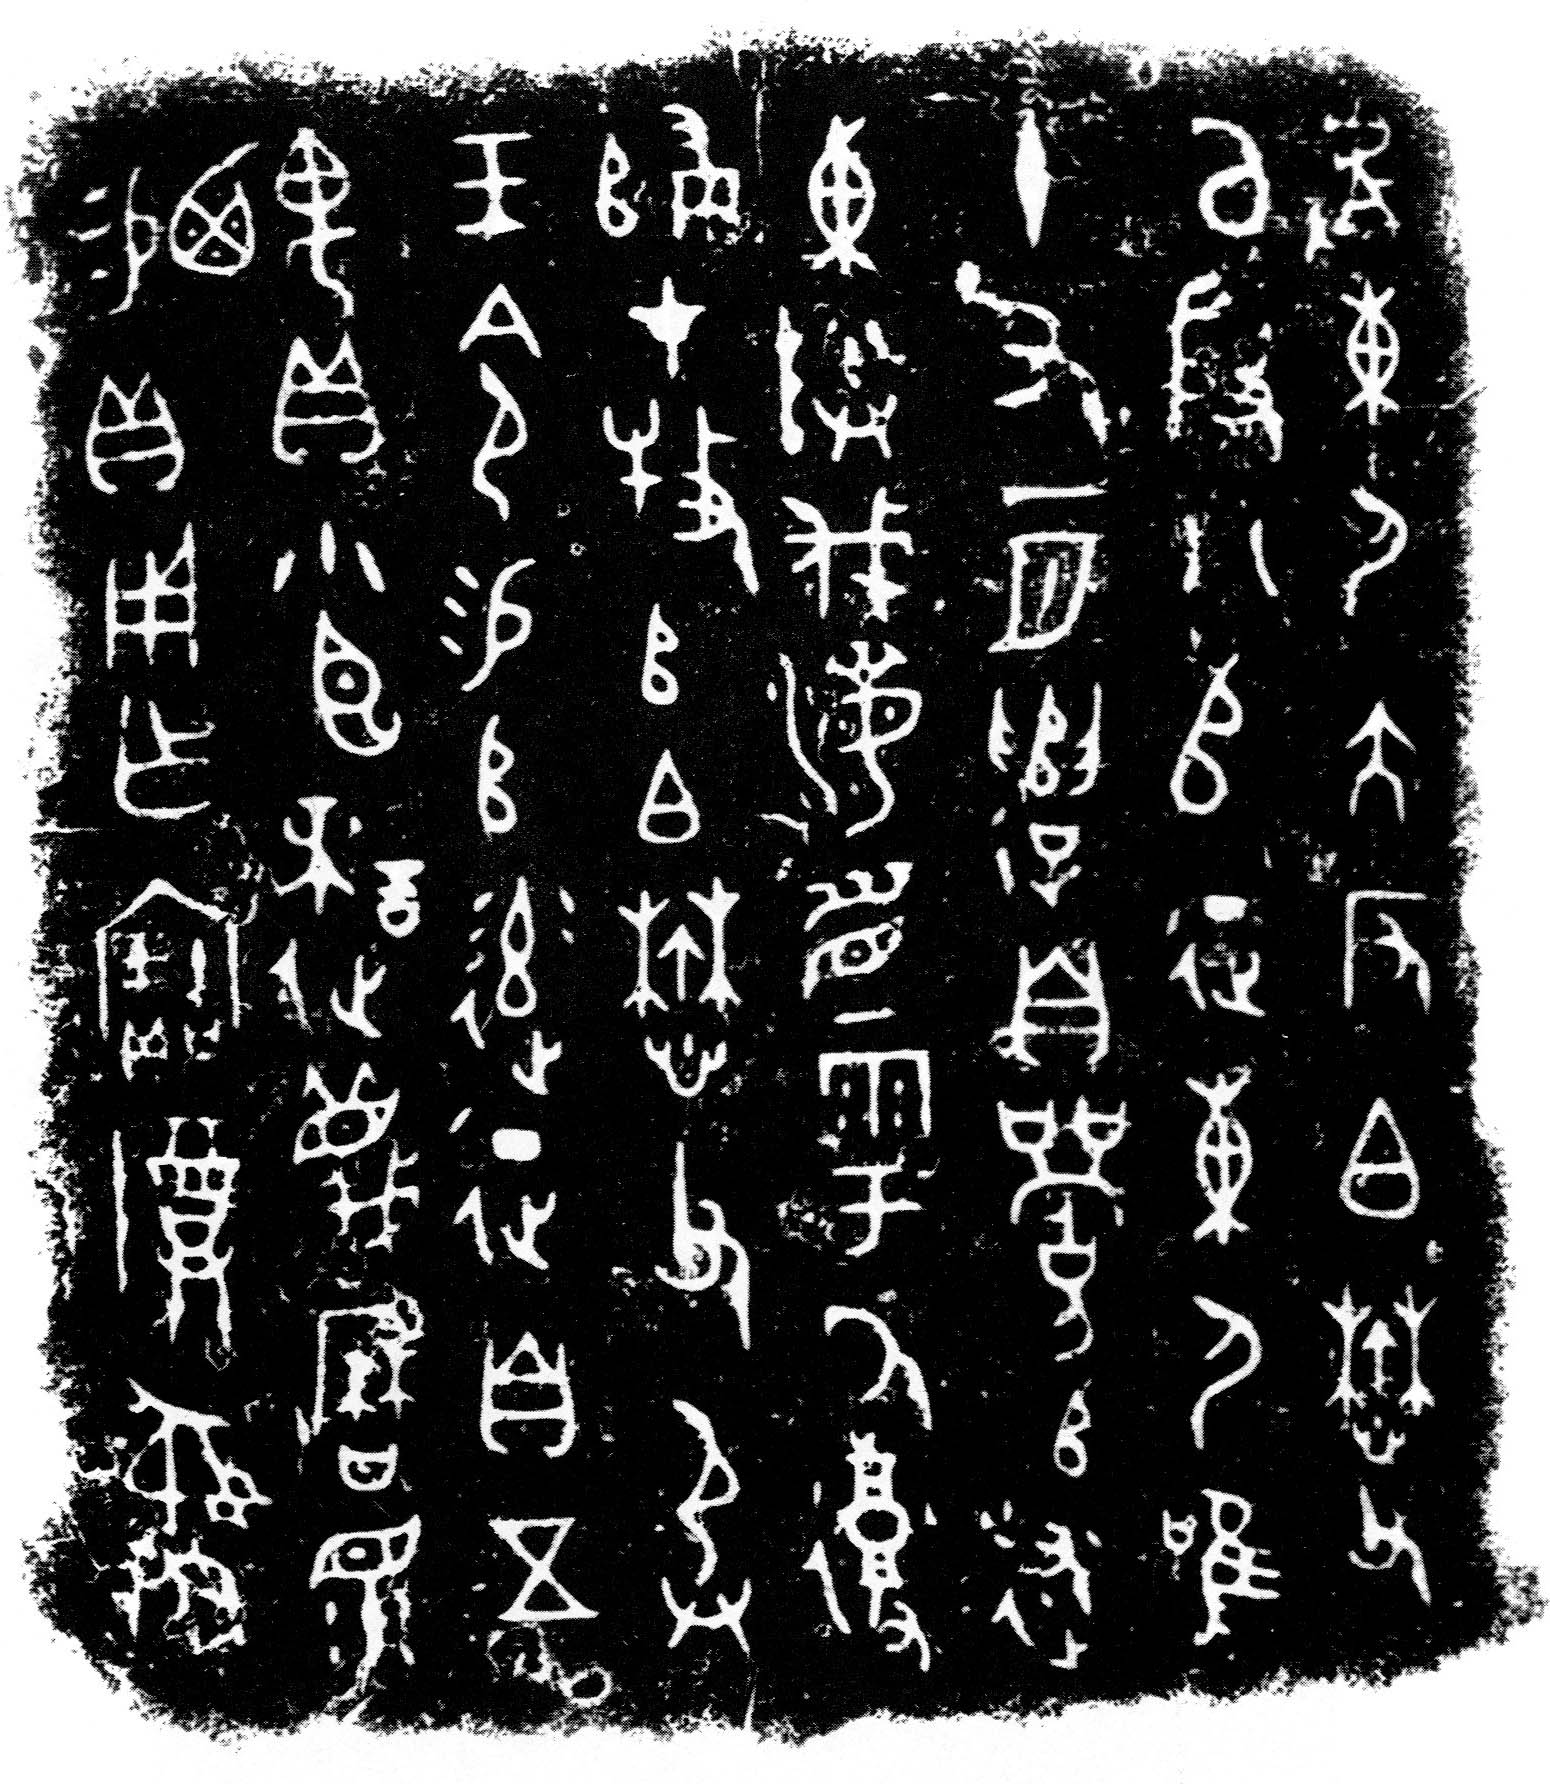 𠭯東尸大反白懋父
以殷八𠂤征東尸唯
十又一月遣自𠂤述
東伐海眉雩氒復
歸才牧𠂤白懋父承
王令易𠂤率征自五
齵貝小臣謎蔑曆眔
易貝用乍寶尊彝